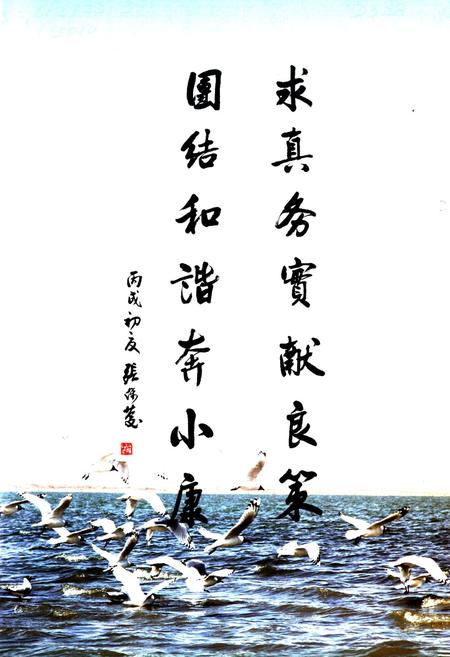 求真务實献良策
團结和谐奔小康
丙戌初夏 張